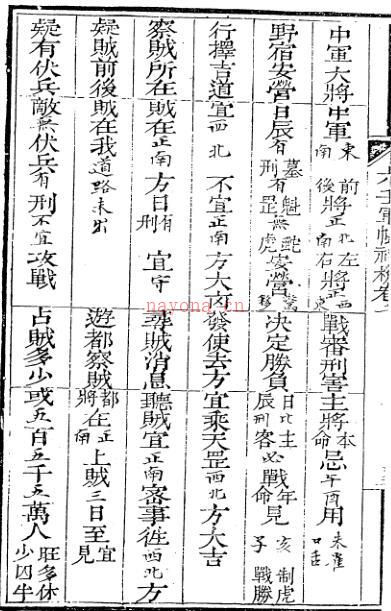 六壬軍帳神機卷
中軍大將中軍東南前後將正北南左右將正西東戰審刑害主將本命忌午酉用未產口舌
野宿安營日辰有墓刑有魁罡無蛇虎安營驚移決定勝負日比主辰刑客必戰年命見亥子制虎戰勝
行擇吉道宜西北不宜正南方大凶發使去方宜乘天罡西北方大吉
察賊所在賊在正南方日有刑宜守尋賊消息聽賊宜正南審事徃西北方
疑賊前後賊在我道路未出遊都察賊都將在正南上賊三日至宜見
疑有伏兵敵無伏兵有刑不宜攻戰占賊多少或五百五千五萬人旺多休少囚半
nayona.cn